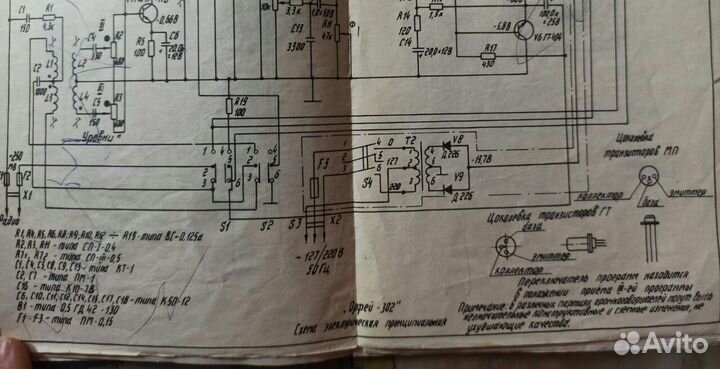 C1
150
R1
4,3к
C4
330
R2
C2
1000
L1
L2
L3
L4
C5
150
R3
Уровни
-0,66В
R5
100
C6
20,0×12В
R19
100
2,3к
1,0×50В
C13
3300
R11
47к
R14
120
C14
20,0×12В
1,5к
-5,0В
V6 ГТ404
R17
430
100,0
×25В
~250
мВ
F1
F2
X1
Радио
S1
S2
F3
S3
X2
S4
0
127
220
T2
V8
Д226
V9
Д226
-19,7В
~127/220В
50Гц
Цоколевка
транзисторов МП
коллектор
эмиттер
база
Цоколевка транзисторов ГТ
база
эмиттер
коллектор
R1, R4, R5, R6, R8, R9, R10, R12 ÷ R19 - типа ВС-0,125а
R2, R3, R11 - типа СП-I-0,4
R7, R72 - типа СП-III-0,5
C1, C4, C5, C8, C9, C13 - типа КТ-1
C2, C7 - типа ПМ-1
C16 - типа К10-7В
C6, C10, C11, C12, C14, C15, C17, C18 - типа К50-12
B1 - типа 0,5 ГД 42-130
F1-F3 - типа ПМ-0,15
„Орфей-302"
Схема электрическая принципиальная
Переключатель программ находится
в положении приема III-ей программы
Примечание: в различных партиях громкоговорителей могут быть
незначительные конструктивные и схемные изменения, не
ухудшающие качества.
Avito